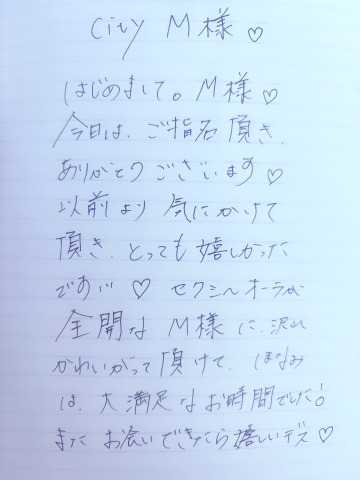 City M様♡
はじめまして。M様♡
今日は、ご指名頂き、
ありがとうございます♡
以前より気にかけて
頂き、とっても嬉しかった
です!!♡ セクシーオーラが
全開なM様に、沢山
かわいがって頂けて、ほなみ
は、大満足なお時間でした!
また お会いできたら嬉しいデス♡